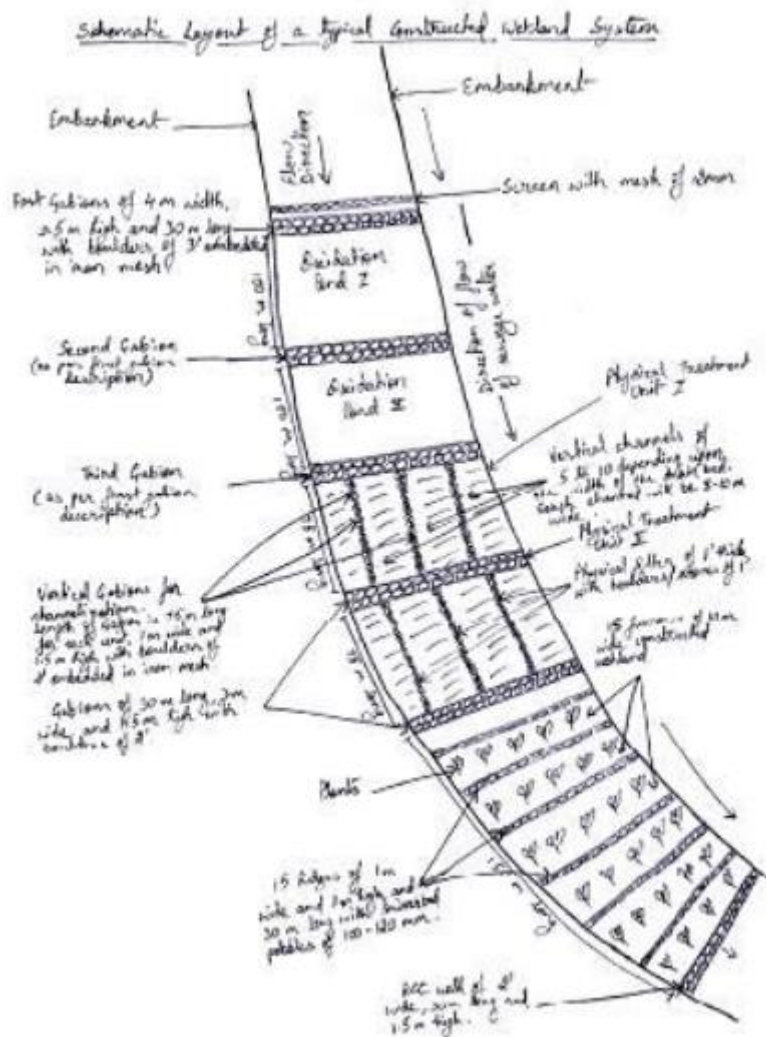 Schematic Layout of a typical Constructed Wetland System
Embankment
Embankment
Flow Direction
First Gabions of 4 m width,
2.5 m high and 30 m long
with boulders of 3' embedded
in iron mesh
Screen with mesh of
Oxidation
Pond I
Direction of flow
of sewage water
100 m long
Second Gabion
(as per first gabion
description)
Oxidation
Pond II
100 m long
Physical Treatment
Unit I
Third Gabion
(as per first gabion
description)
Vertical channels of
5 to 10 depending upon
width of the
each channel will be 8-10 m
wide
Physical Treatment
Unit II
Physical filter of 1' high
with boulders/stones of 1'
Vertical Gabions for
channelization.
Length of Gabion is 75 m long
for each unit, 1m wide and
1.5 m high with boulders of
2' embedded in iron mesh
Gabions of 30 m long,
wide, and 1.5 m high with
boulders of 2'
wide constructed
wetland
Plants
15 Ridges of 1m
wide and 1m high and
30 m long with
pebbles of 100-120 mm.
long
RCC wall of 2'
wide, long and
1.5 m high.